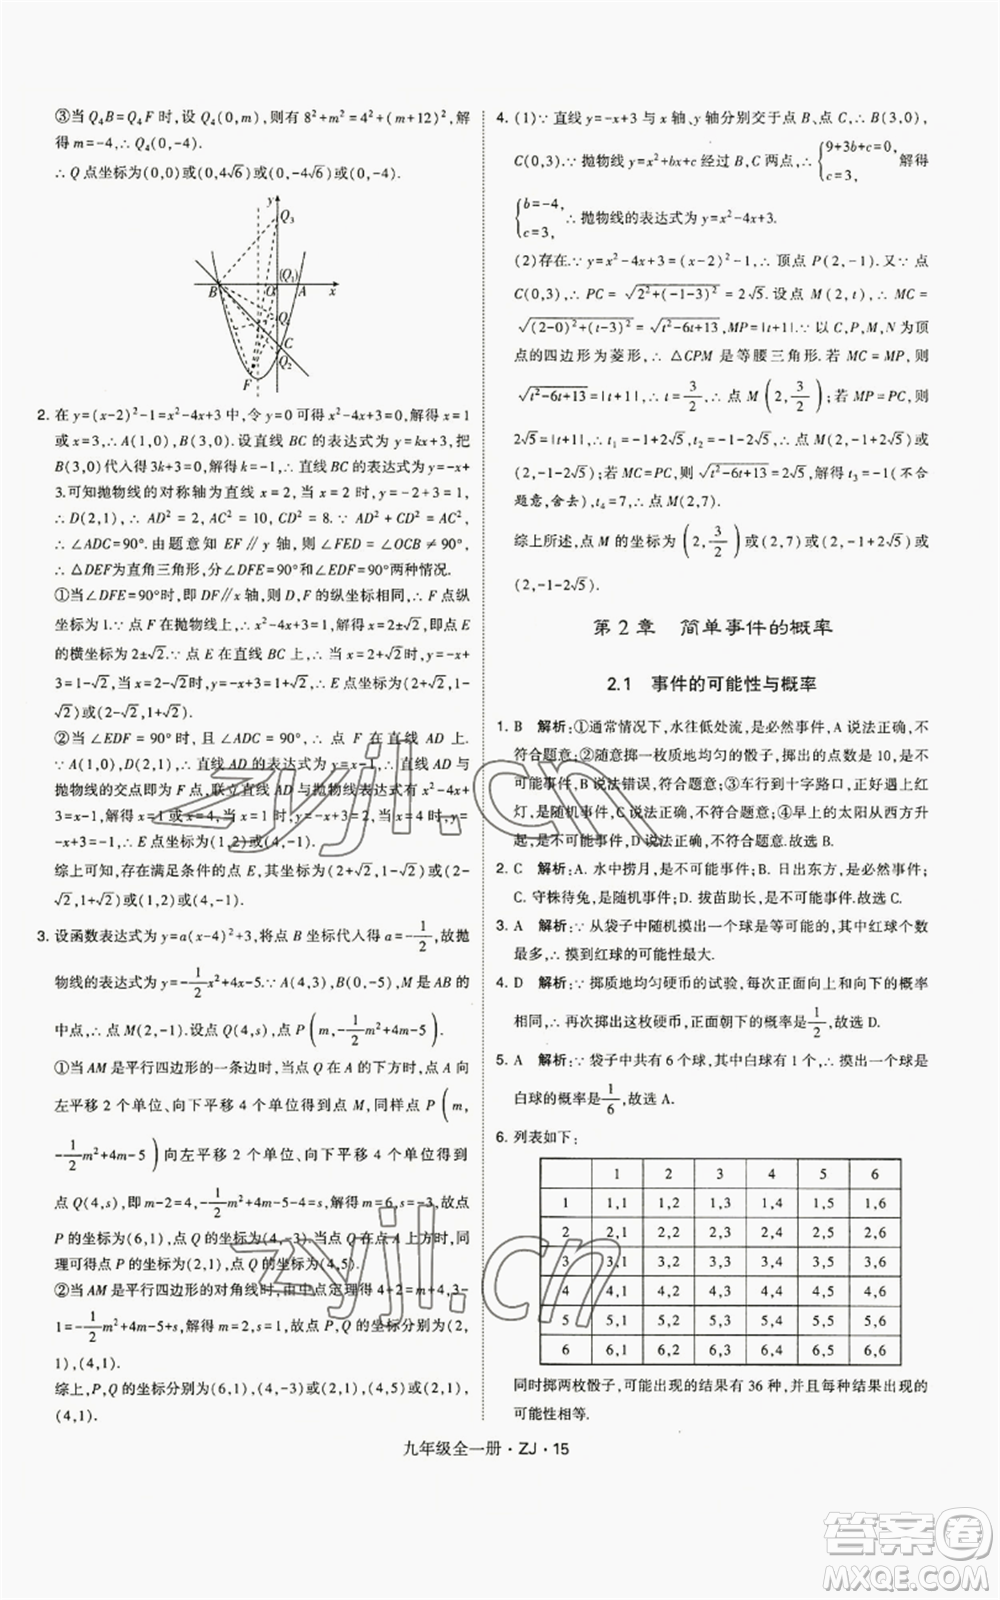 ③当 Q₄B=Q₄F 时,设 Q₄(0,m),则有 8²+m²=4²+(m+12)².解
得 m=-4,∴ Q₄(0,-4).
∴ Q 点坐标为(0,0)或(0,4√6)或(0,-4√6)或(0,-4).
y
Q₃
(Q₁)
B O A x
Q₄
C
Q₂
F
2. 在 y=(x-2)²-1=x²-4x+3 中,令 y=0 可得 x²-4x+3=0,解得 x=1
或 x=3,∴ A(1,0),B(3,0).设直线 BC 的表达式为 y=kx+3,把
B(3,0)代入得 3k+3=0,解得 k=-1,∴ 直线 BC 的表达式为 y=-x+
3.可知抛物线的对称轴为直线 x=2,当 x=2 时,y=-x+3=1,
∴ D(2,1),∴ AD²=2,AC²=10,CD²=8.∵ AD²+CD²=AC²,
∴ ∠ADC=90°.由题意知 EF∥y 轴,则∠FED=∠OCB≠90°,
∴ △DEF为直角三角形,分∠DFE=90°和∠EDF=90°两种情况.
①当∠DFE=90°时,即 DF∥x 轴,则 D,F 的纵坐标相同,∴ F 点纵
坐标为 1.∵ 点 F 在抛物线上,∴ x²-4x+3=1,解得 x=2±√2,即点 E
的横坐标为 2±√2.∵ 点 E 在直线 BC 上,∴ 当 x=2+√2 时,y=-x+
3=1-√2,当 x=2-√2 时,y=-x+3=1+√2,∴ E 点坐标为(2+√2,1-
√2)或(2-√2,1+√2).
②当∠EDF=90°时,且∠ADC=90°,∴ 点 F 在直线 AD 上.
∵ A(1,0),D(2,1),∴ 直线 AD 的表达式为 y=x-1,∴ 直线 AD 与抛
物线的交点即为点 F,联立直线 AD 与抛物线表达式有 x²-4x+
3=x-1,解得 x=1 或 x=4,当 x=1 时,y=-x+3=2,当 x=4 时,y=
-x+3=-1,∴ E 点坐标为(1,2)或(4,-1).
综上可知,存在满足条件的点 E,其坐标为(2+√2,1-√2)或(2-
√2,1+√2)或(1,2)或(4,-1).
3. 设函数表达式为 y=a(x-4)²+3,将点 B 坐标代入得 a=-1/2,故抛
物线的表达式为 y=-1/2x²+4x-5.∵ A(4,3),B(0,-5),M 是 AB 的
中点,∴ M(2,-1).设点 Q(4,s),点 P(m,-1/2m²+4m-5).
①当 AM 是平行四边形的一条边时,当点 Q 在 A 的下方时,点 A 向
左平移 2 个单位、向下平移 4 个单位得到点 M,同样点 P(m,
-1/2m²+4m-5)向左平移 2 个单位、向下平移 4 个单位得到
点 Q(4,s),即 m-2=4,-1/2m²+4m-5-4=s,解得 m=6,s=-3,故点
P 的坐标为(6,1),点 Q 的坐标为(4,-3).当点 Q 在点 A 上方时,同
理可得点 P 的坐标为(2,1),点 Q 的坐标为(4,5).
②当 AM 是平行四边形的对角线时,由中点定理得 4+2=m+4,3-
1=-1/2m²+4m-5+s,解得 m=2,s=1,故点 P,Q 的坐标分别为(2,
1),(4,1).
综上,P,Q 的坐标分别为(6,1),(4,-3)或(2,1),(4,5)或(2,1),
(4,1).
4. (1)∵ 直线 y=-x+3 与 x 轴、y 轴分别交于点 B、点 C,∴ B(3,0),
C(0,3).∵ 抛物线 y=x²+bx+c 经过 B,C 两点,∴ {9+3b+c=0, c=3, 解得
{b=-4, c=3, ∴ 抛物线的表达式为 y=x²-4x+3.
(2)存在.∵ y=x²-4x+3=(x-2)²-1,∴ 顶点 P(2,-1).又∵
C(0,3),∴ PC=√(2²+(-1-3)²)=2√5.设点 M(2,t),∴ MC=
√((2-0)²+(t-3)²)=√(t²-6t+13),MP=|t+1|.∵ 以 C,P,M,N 为顶
点的四边形为菱形,∴ △CPM 是等腰三角形.若 MC=MP,则
√(t²-6t+13)=|t+1|,解得 t=3/2,∴ 点 M(2,3/2);若 MP=PC,则
2√5=|t+1|,∴ t₁=-1+2√5,t₂=-1-2√5,∴ 点 M(2,-1+2√5)或
(2,-1-2√5);若 MC=PC,则√(t²-6t+13)=2√5,解得 t₃=-1(不合
题意,舍去),t₄=7,∴ 点 M(2,7).
综上所述,点 M 的坐标为(2,3/2)或(2,7)或(2,-1+2√5)或
(2,-1-2√5).
第 2 章 简单事件的概率
2.1 事件的可能性与概率
1. B 解析:①通常情况下,水往低处流,是必然事件,A 说法正确,不
符合题意;②随意掷一枚质地均匀的骰子,掷出的点数是 10,是不
可能事件,B 说法错误,符合题意;③车行到十字路口,正好遇上红
灯,是随机事件,C 说法正确,不符合题意;④早上的太阳从西方升
起,是不可能事件,D 说法正确,不符合题意.故选 B.
2. C 解析:A. 水中捞月,是不可能事件;B. 日出东方,是必然事件;
C. 守株待兔,是随机事件;D. 拔苗助长,是不可能事件.故选 C.
3. A 解析:∵ 从袋子中随机摸出一个球是等可能的,其中红球个数
最多,∴ 摸到红球的可能性最大.
4. D 解析:∵ 掷质地均匀硬币的试验,每次正面向上和向下的概率
相同,∴ 再次掷出这枚硬币,正面朝下的概率是1/2,故选 D.
5. A 解析:∵ 袋子中共有 6 个球,其中白球有 1 个,∴ 摸出一个球是
白球的概率是1/6,故选 A.
6. 列表如下:
1 2 3 4 5 6
1 1,1 1,2 1,3 1,4 1,5 1,6
2 2,1 2,2 2,3 2,4 2,5 2,6
3 3,1 3,2 3,3 3,4 3,5 3,6
4 4,1 4,2 4,3 4,4 4,5 4,6
5 5,1 5,2 5,3 5,4 5,5 5,6
6 6,1 6,2 6,3 6,4 6,5 6,6
同时掷两枚骰子,可能出现的结果有 36 种,并且每种结果出现的
可能性相等.
九年级全一册·ZJ·15
zyjl.cn
zyjl.cn
答案卷
MXQE.COM